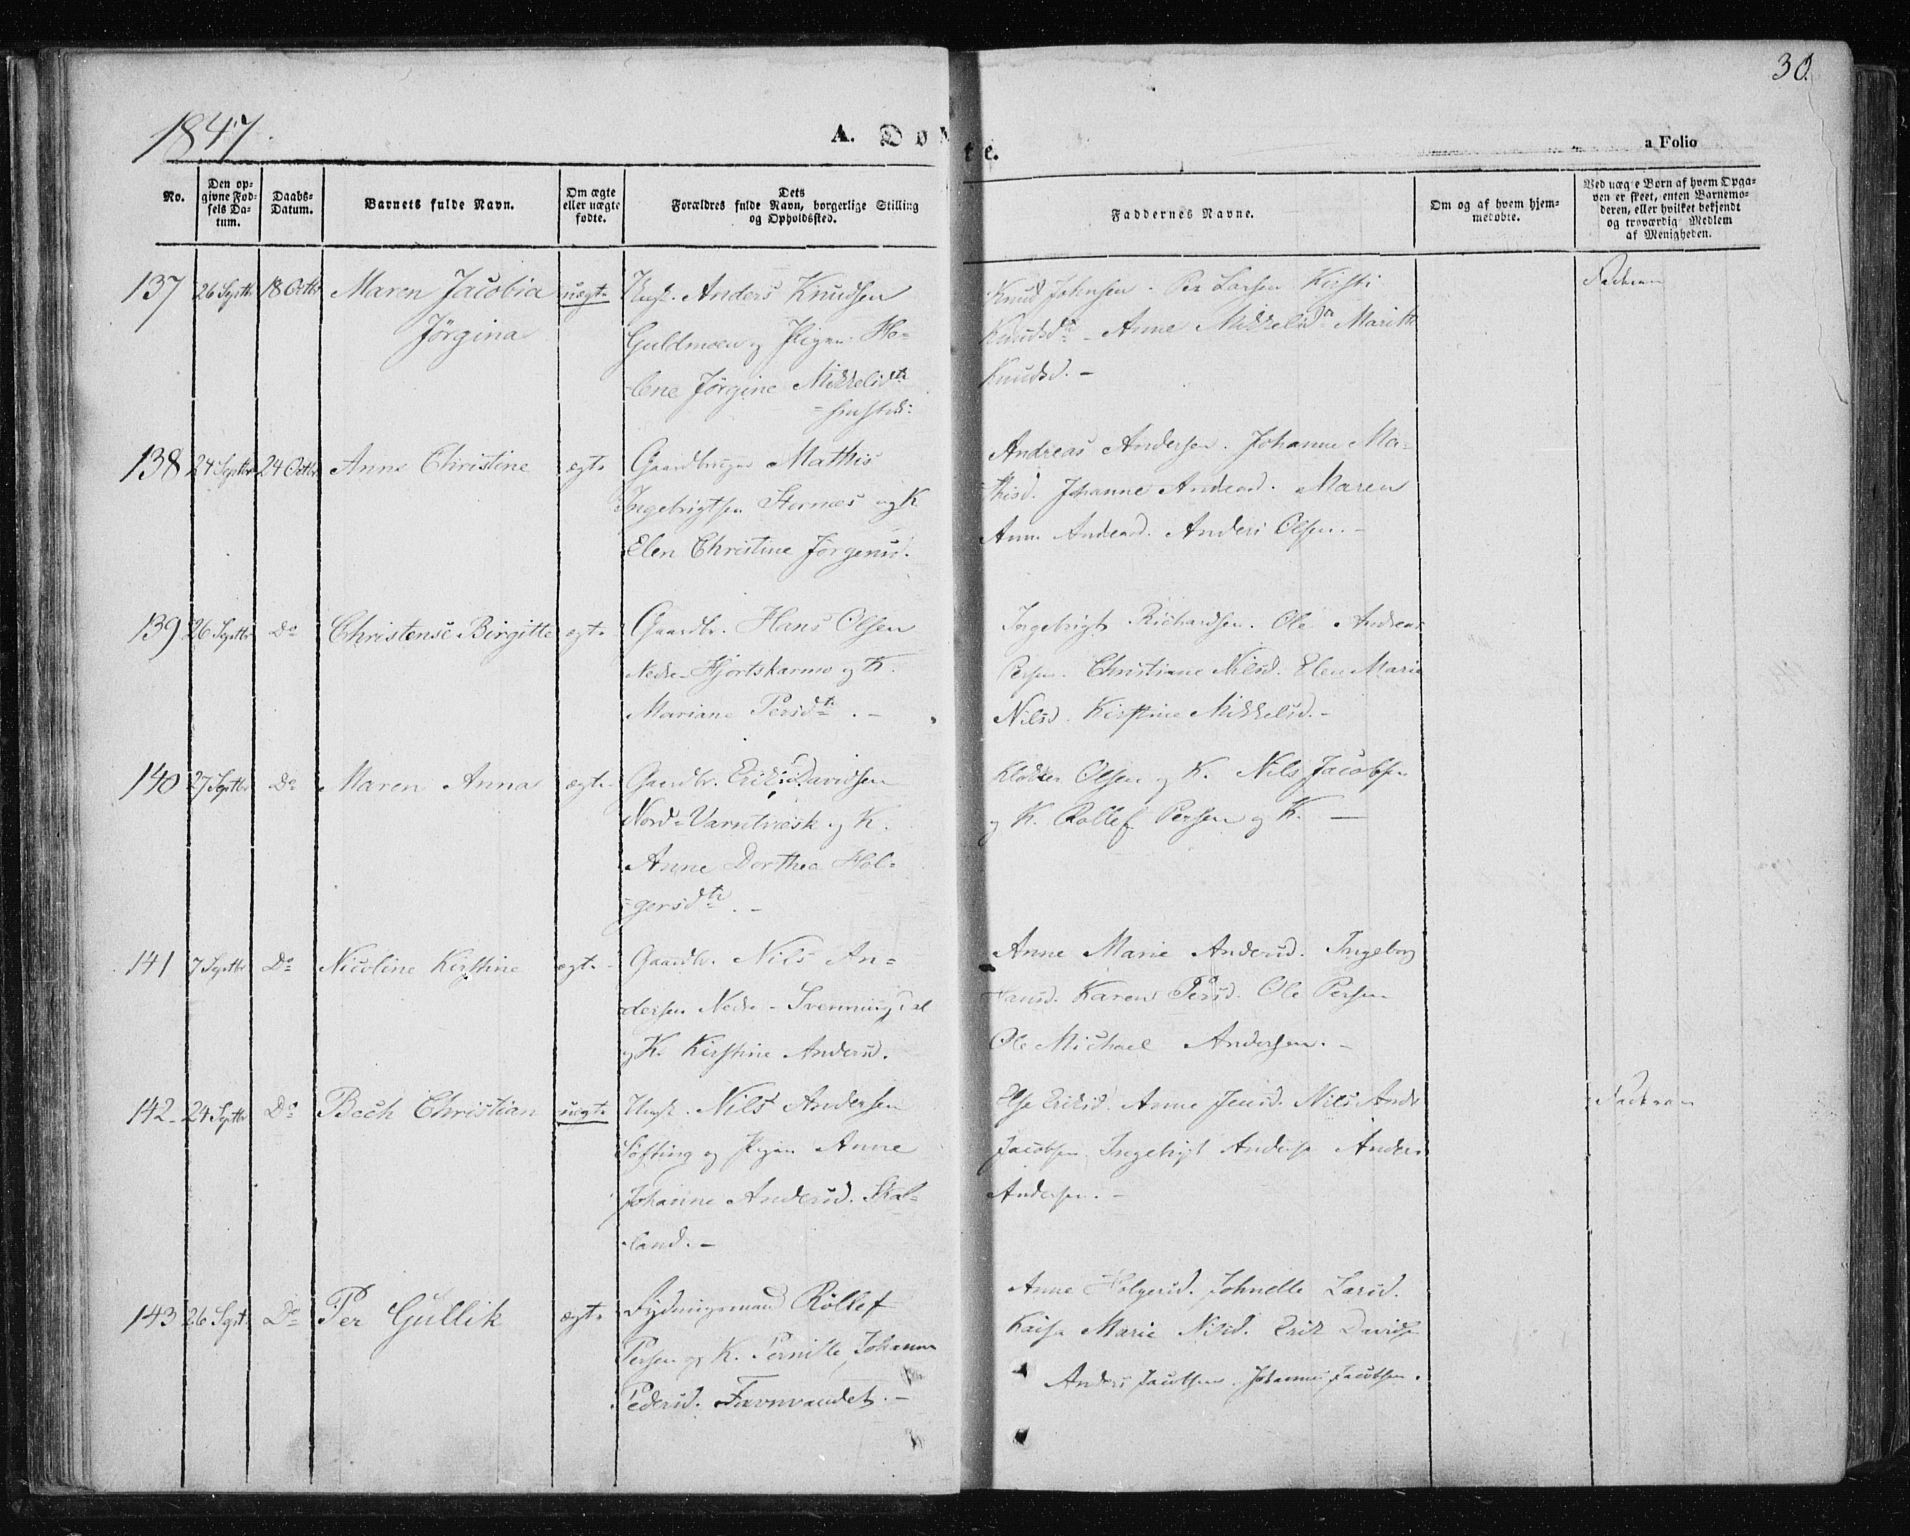 30.
1847.
A. Døbte.
a Folio
No.
Den opgivne Fødsels Datum.
Daabs-Datum.
Barnets fulde Navn.
Om ægte eller uægte fødte.
Dets Forældres fulde Navn, borgerlige Stilling og Opholdssted.
Faddernes Navne.
Om og af hvem hjemmedøbte.
Ved uægte Børn af hvem Opgaven er skeet, enten Barnemoderen, eller hvilket bekjendt og troværdig Medlem af Menigheden.
137 26 Septbr 18 Octbr Maren Jacobia uægte Anders Knudsen Knud Johnsen. Per Larsen Kirsti Faderen
Jørgina Guldmoen og Pigen He- Knudsdtr - Anne Mikkelsdtr Marith
lene Jørgine Mikkelsdtr Knudsd. -
138 24 Septbr 24 Octbr Anne Christine ægte Gaardbruger Mathis Andreas Andersen. Johanne Ma-
Ingebrigtsen Stornæs og K. thisd. Johanne Andersd. Maren
Elen Christine Jørgensd. Anne Andersd. Anders Olsen. -
139 26 Septbr Do Christense Birgitte ægte Gaardbr. Hans Olsen Ingebrigt Richardsen. Ole Andreas
Nedre-Hjortskarmo og K. Persen. Christiane Nilsd. Elen Marie
Mariane Persdtr. - Nilsd. Kirstine Mikkelsd. -
140 27 Septbr Do Maren Anna ægte Gaardbr. Erik Davidsen Olsen og K. Nils Jacobsen
Nord-Varntræsk og K. og K. Rollef Persen og K. -
Anne Dorthea Hol-
gersdtr. -
141 7 Septbr Do Nicoline Kirstine ægte Gaardbr. Nils An- Anne Marie Andersd. Ingeborg
dersen Nedre-Svenningdal Hansd. Karen Persd. Ole Persen
og K. Kirstine Andersd. Ole Michael Andersen. -
142 24 Septbr Do Bech Christian uægte Nils Andersen Else Eriksd. Anne Jensd. Nils Ands Faderen
Søfting og Pigen Anne Jacobsen Ingebrigt Andersen Anders
Johanne Andersd. Skal- Andersen. -
land. -
143 26 Sept. Do Per Gullik ægte Rydningsmand Rollef Anne Holgersd. Johnelle Larsd.
Persen og K. Pernille Johanna Kaisa Marie Nilsd. Erik Davidsen
Pedersd. Favnvandet. - Anders Jacobsen. Johannes Jacobsen.